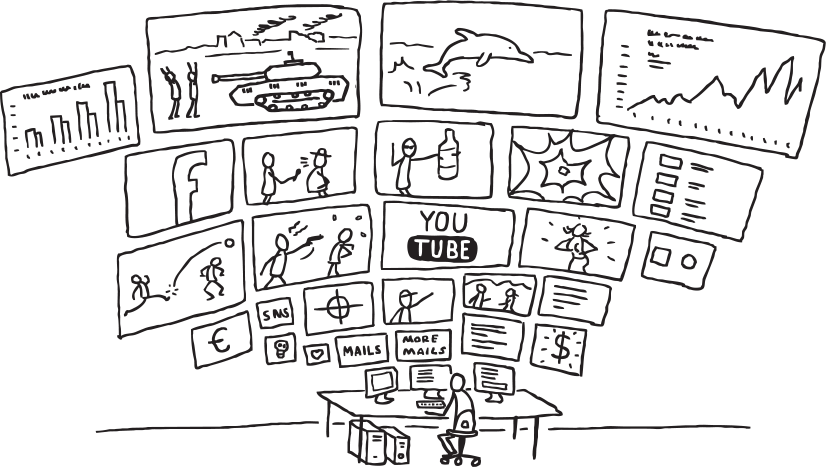 f
YOU
TUBE
SMS
€
MAILS
MORE
MAILS
$